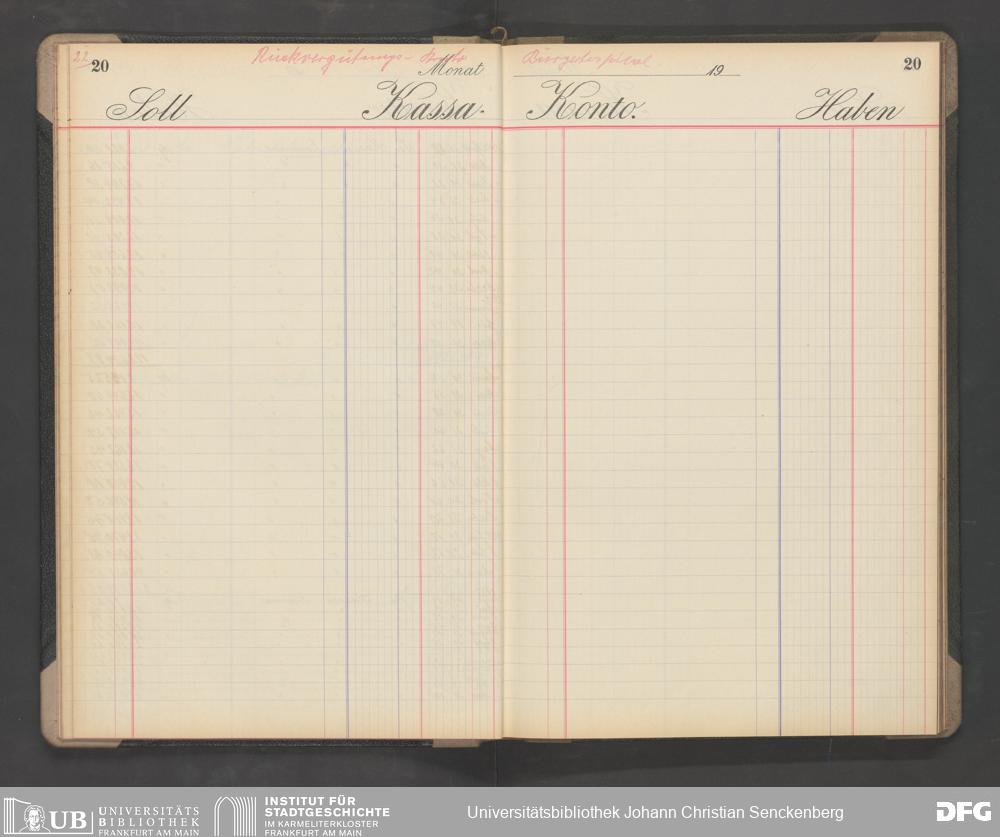 22 20 Rückvergütungs- Konto Bürgerhospital 20
Monat 19
Soll Kassa- Konto. Haben
UB UNIVERSITÄTS BIBLIOTHEK FRANKFURT AM MAIN
INSTITUT FÜR STADTGESCHICHTE IM KARMELITERKLOSTER FRANKFURT AM MAIN
Universitätsbibliothek Johann Christian Senckenberg
DFG